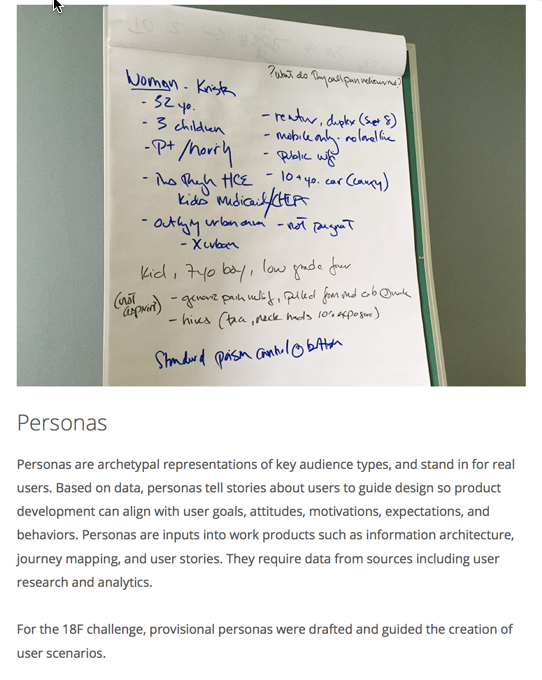 Woman - Krista
? What do they call pain relievers?
- 32 yo.
- 3 children
- PT / hourly
- Ins through HCE
kids Medicaid/CHIP
- outlying urban area
- Xurban
- renter, duplex (Sec 8)
- mobile only - no landline
- public wifi
- 10+ yo. car (Camry)
- not pregnant
Kid, 7yo boy, low grade fever
(not aspirin)
- generic pain relief, pulled from med cab
- hives (face, neck, hands 10% exposure)
Standard poison control @ bottom
Personas
Personas are archetypal representations of key audience types, and stand in for real
users. Based on data, personas tell stories about users to guide design so product
development can align with user goals, attitudes, motivations, expectations, and
behaviors. Personas are inputs into work products such as information architecture,
journey mapping, and user stories. They require data from sources including user
research and analytics.
For the 18F challenge, provisional personas were drafted and guided the creation of
user scenarios.